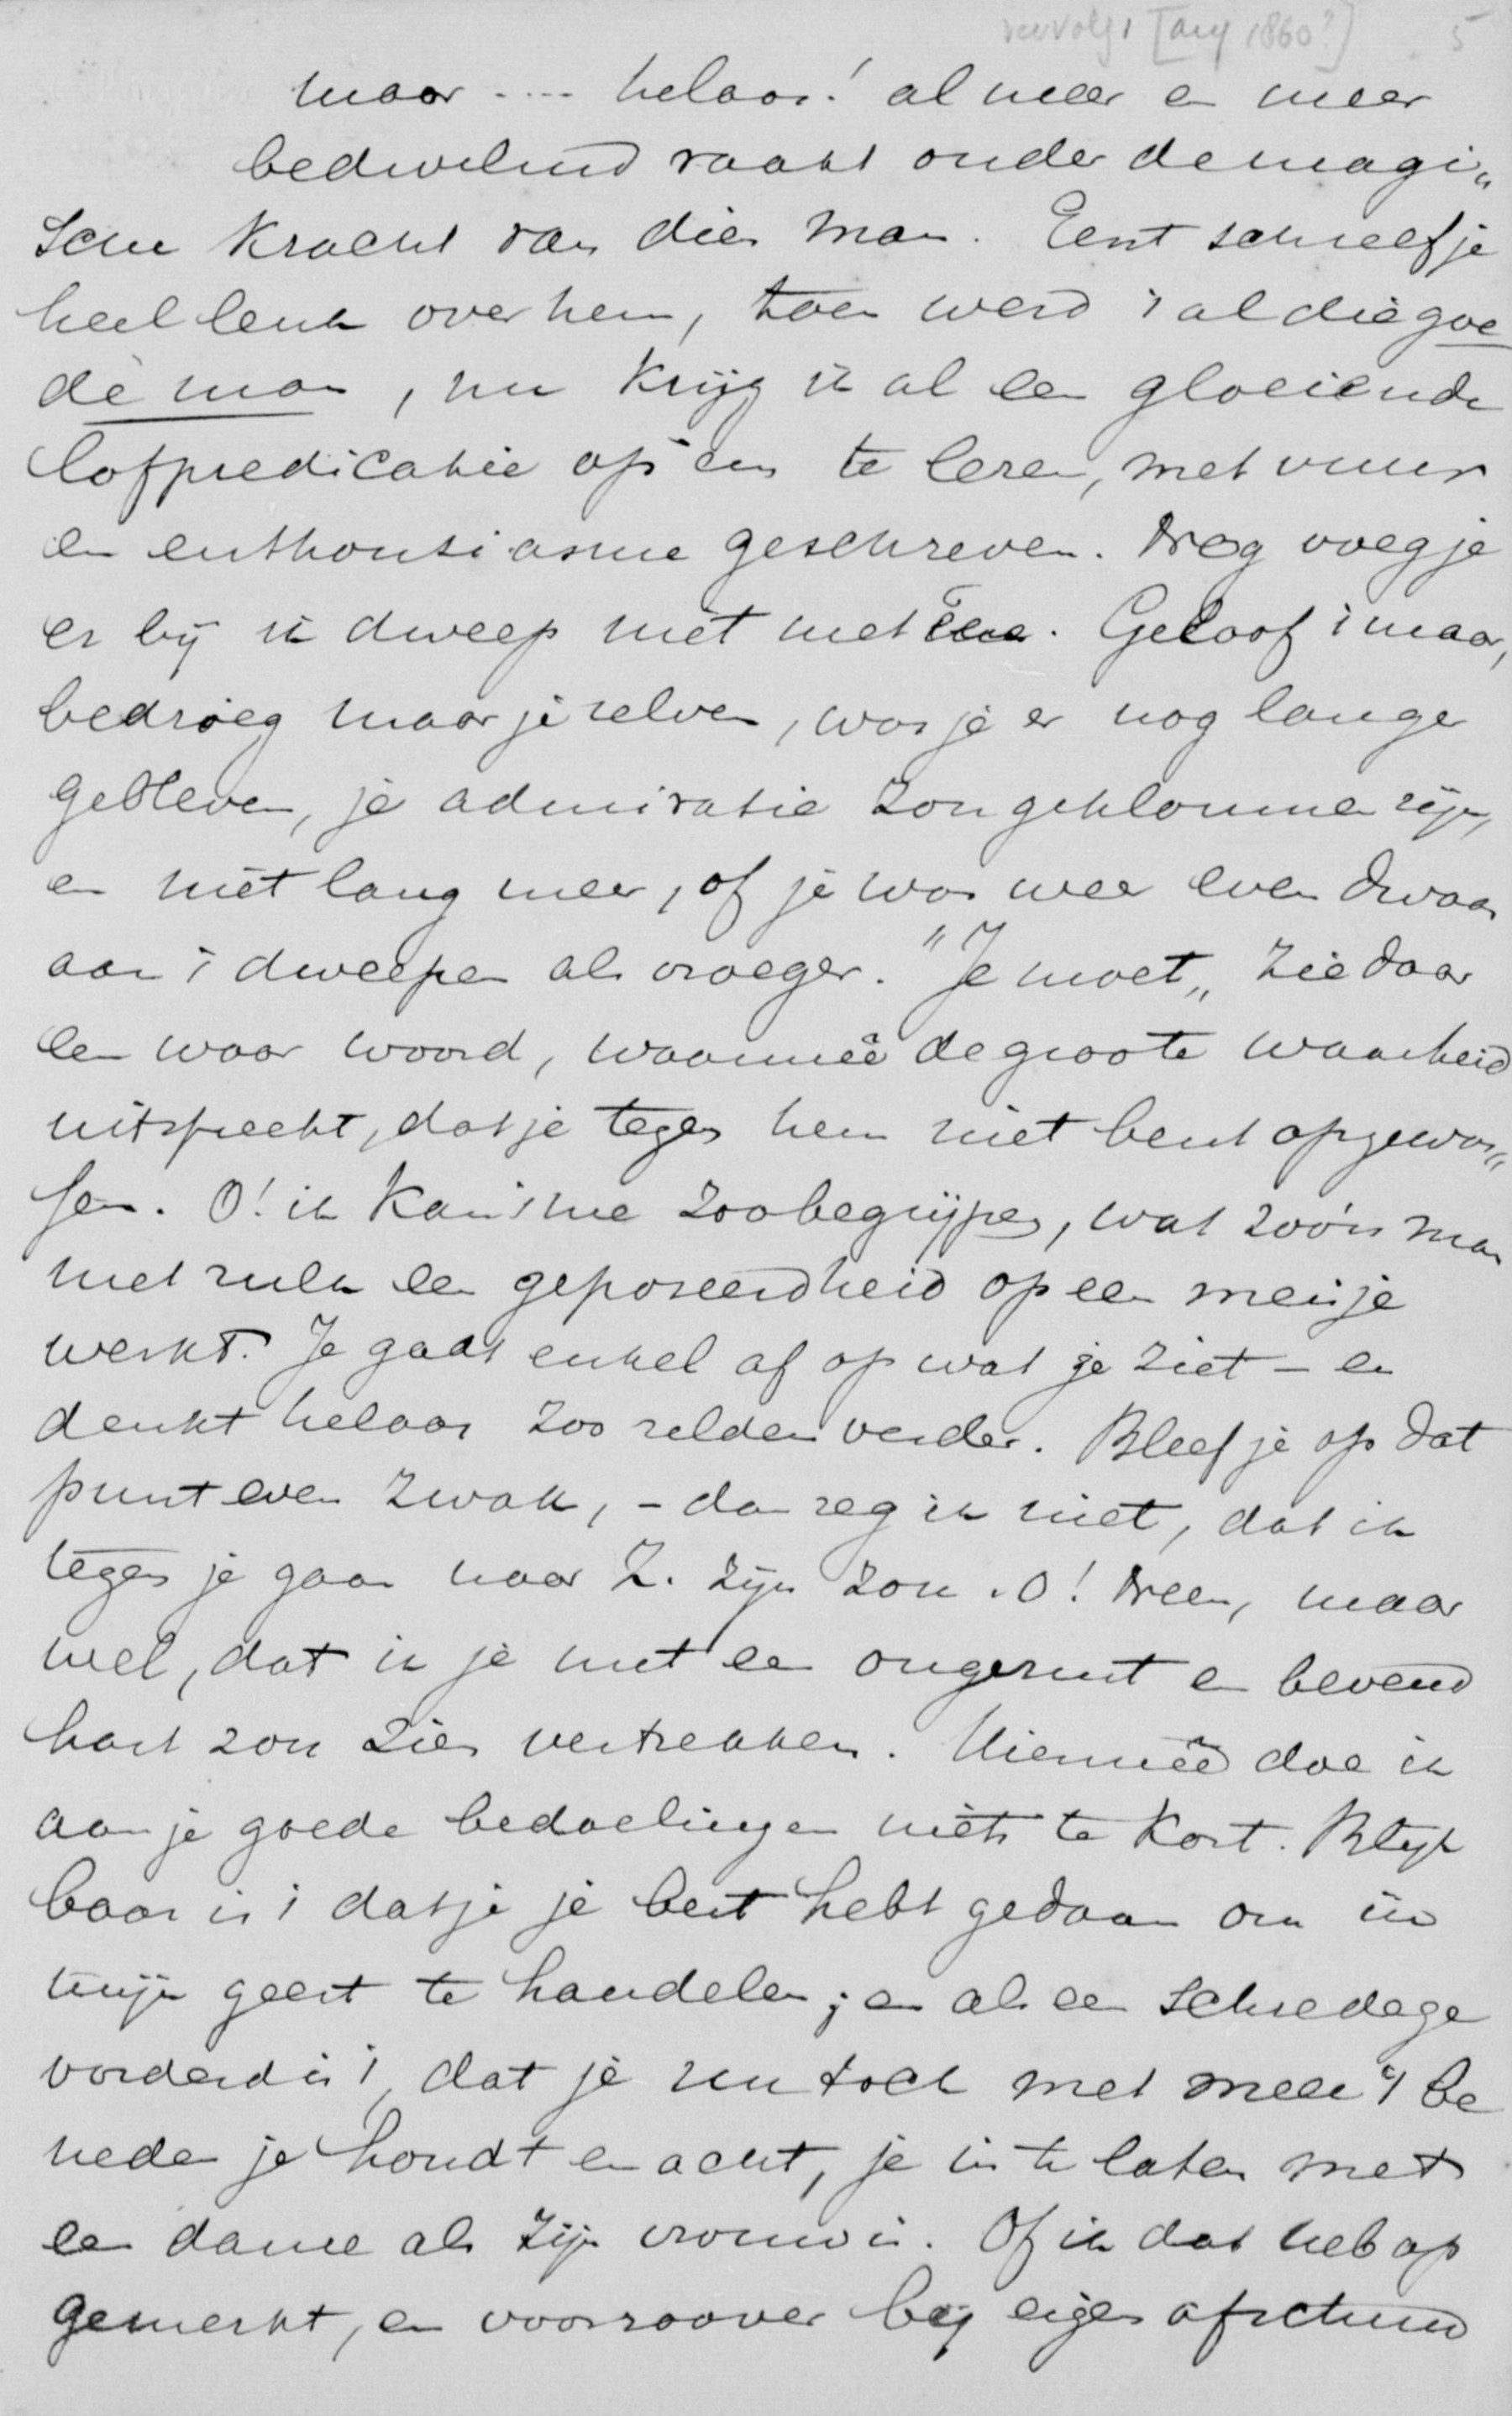 vervolg 1 [aug 1860?] 5
maar .... helaas! al meer en meer
bedwelmd raakt onder de magi„
sche kracht van dien man. Eerst schreef je
heel leuk over hem, toen werd 't al die goe
de man, nu krijg ik al een gloeiende
lofpredicatie op 'em te lezen, met vuur
en enthousiasme geschreven. Nog voeg je
er bij ik dweep niet met éém. Geloof 't maar,
bedrieg maar je zelven, was je er nog langer
gebleven, je admiratie zou geklommen zijn,
en niet lang meer, of je was weer even dwaas
aan 't dweepen als vroeger. "Je moet„ zie daar
een waar woord, waarmeê de groote waarheid
uitspreekt, dat je tegen hem niet bent opgewas„
sen. O! ik kan 't me zoo begrijpen, wat zoo'n man
met zulk een geposeerdheid op een meisje
werkt. Je gaat enkel af op wat je ziet – en
denkt helaas zoo zelden verder. Bleef je op dat
punt even zwak, – dan zeg ik niet, dat ik
tegen je gaan naar Z. zijn zou. O! Neen, maar
wel, dat ik je met een ongerust en bevend
hart zou zien vertrekken. Hiermeê doe ik
aan je goede bedoelingen niets te kort. Blijk
baar is 't dat je je best hebt gedaan om in
mijn geest te handelen; en als een schrede ge
vorderd is 't, dat je nu toch met meer 't be
neden je houdt en acht, je in te laten met
een dame als zijn vrouw is. Of ik dat heb op
gemerkt, en voorzoover bij eigen afschuw